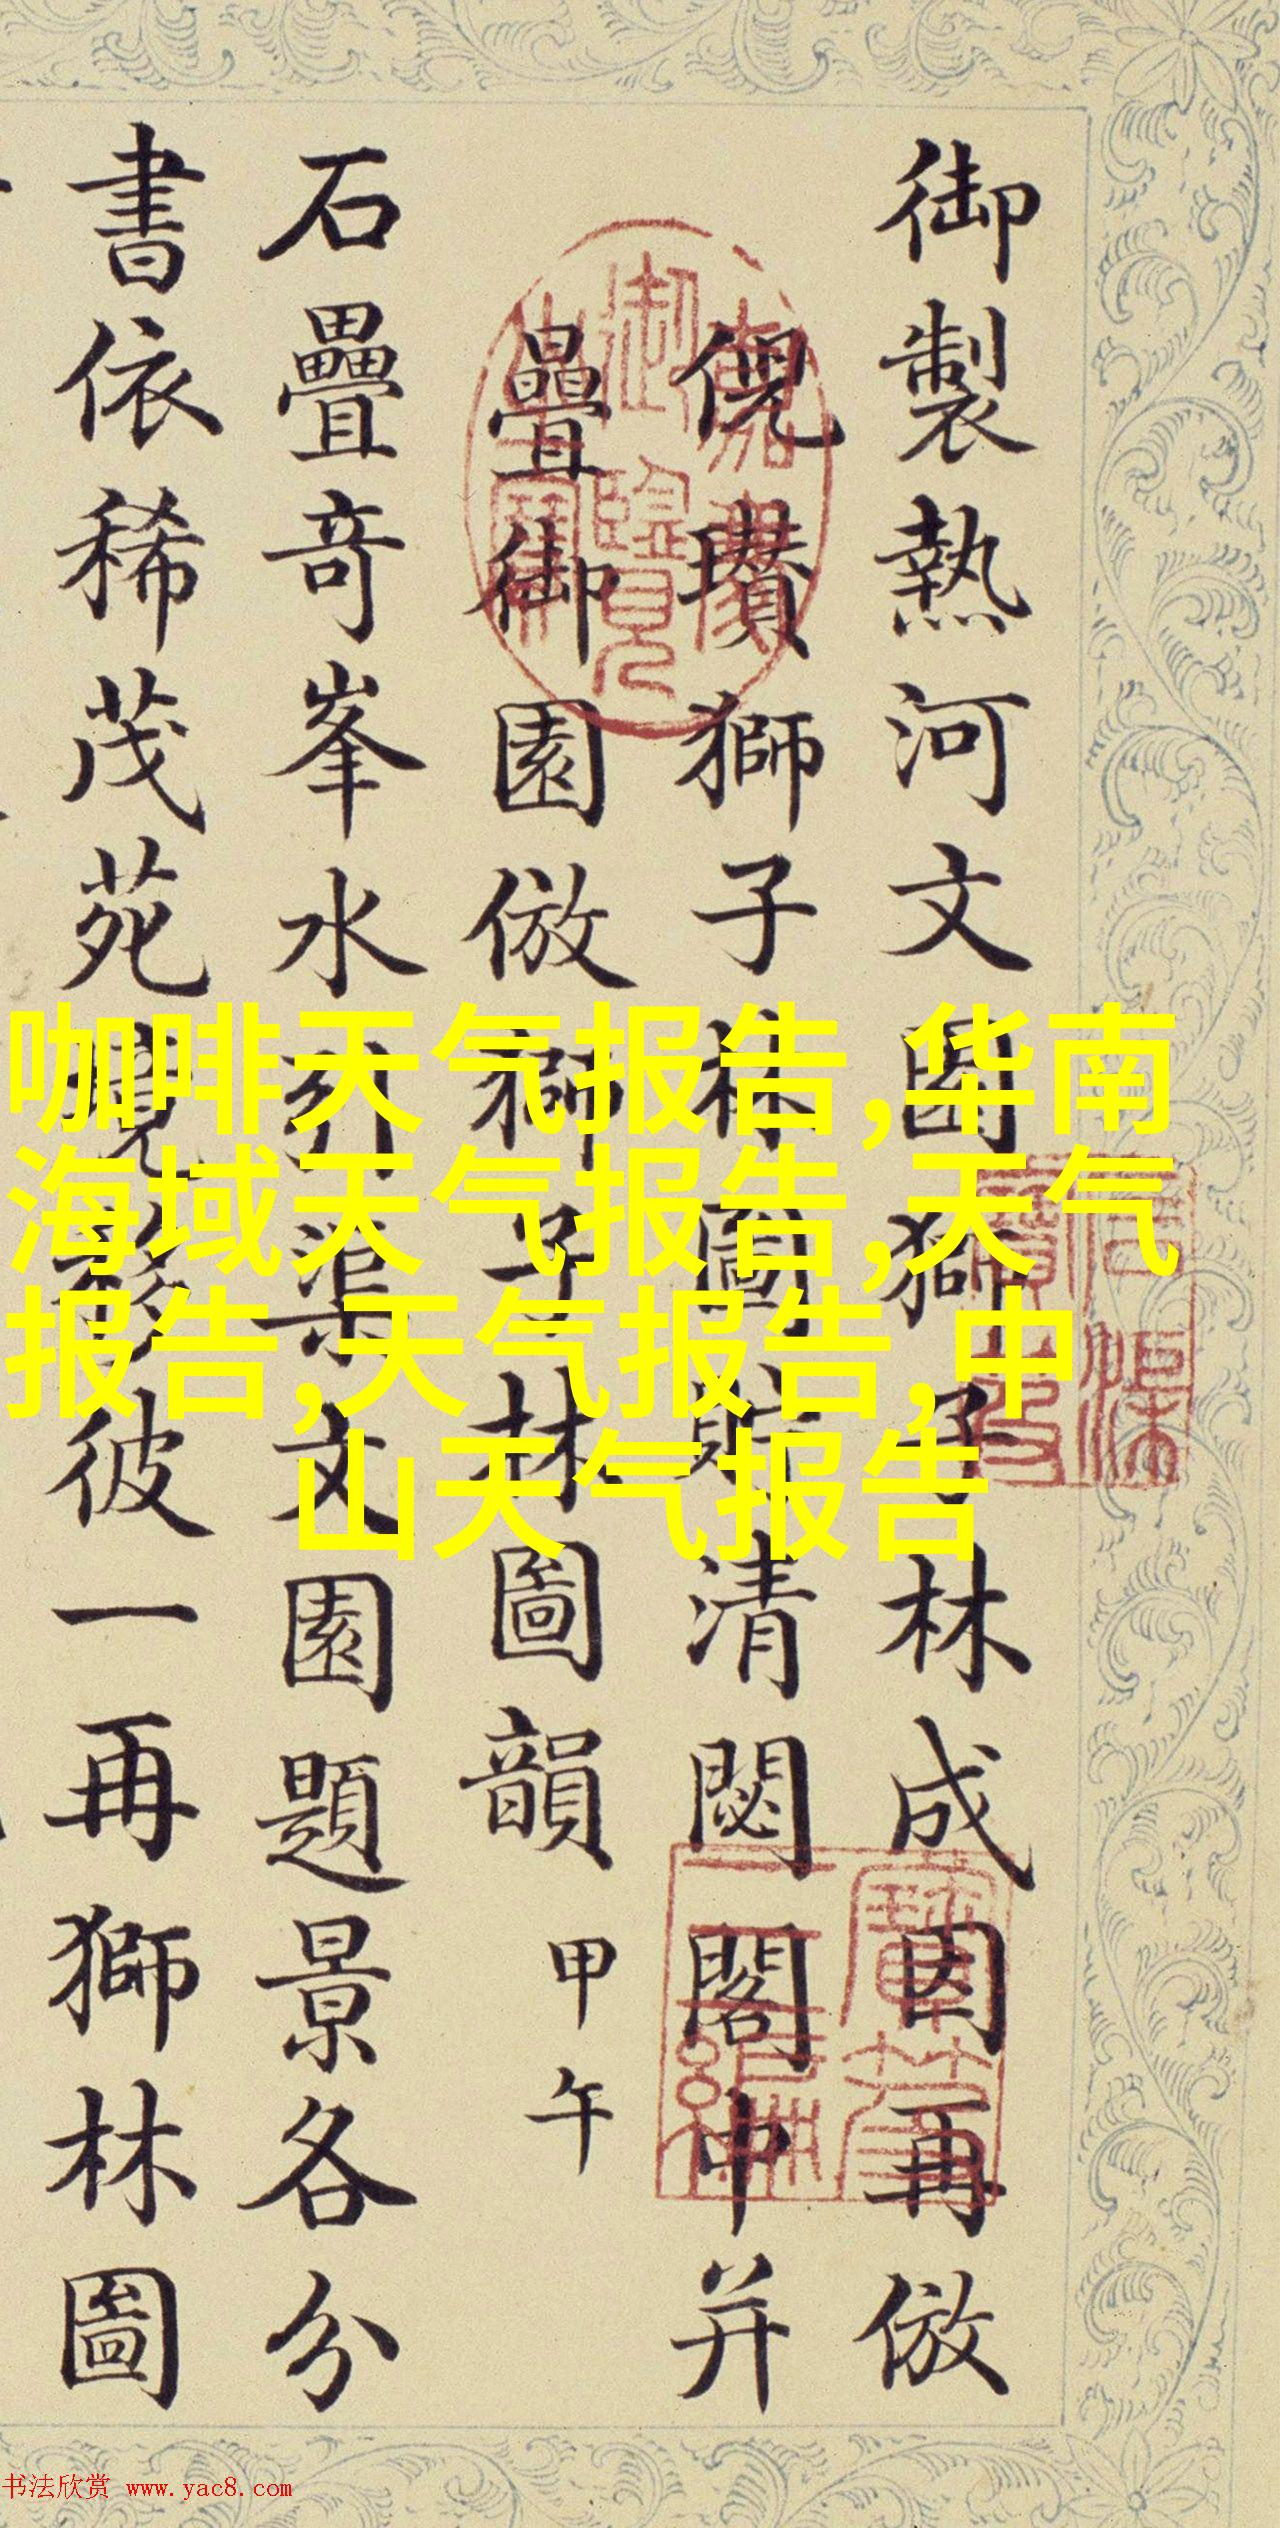 御製熱河文園獅子林成因再倣
倪瓚獅子林圖貯清閟閣中并
疊御園倣獅子林圖韻 甲午
石疊奇峯水列渠文園題景各分
書依稀茂苑境移彼一再獅林圖
咖啡天气报告,华南
海域天气报告,天气
报告,天气报告,中
山天气报告
书法欣赏 www.yac8.com